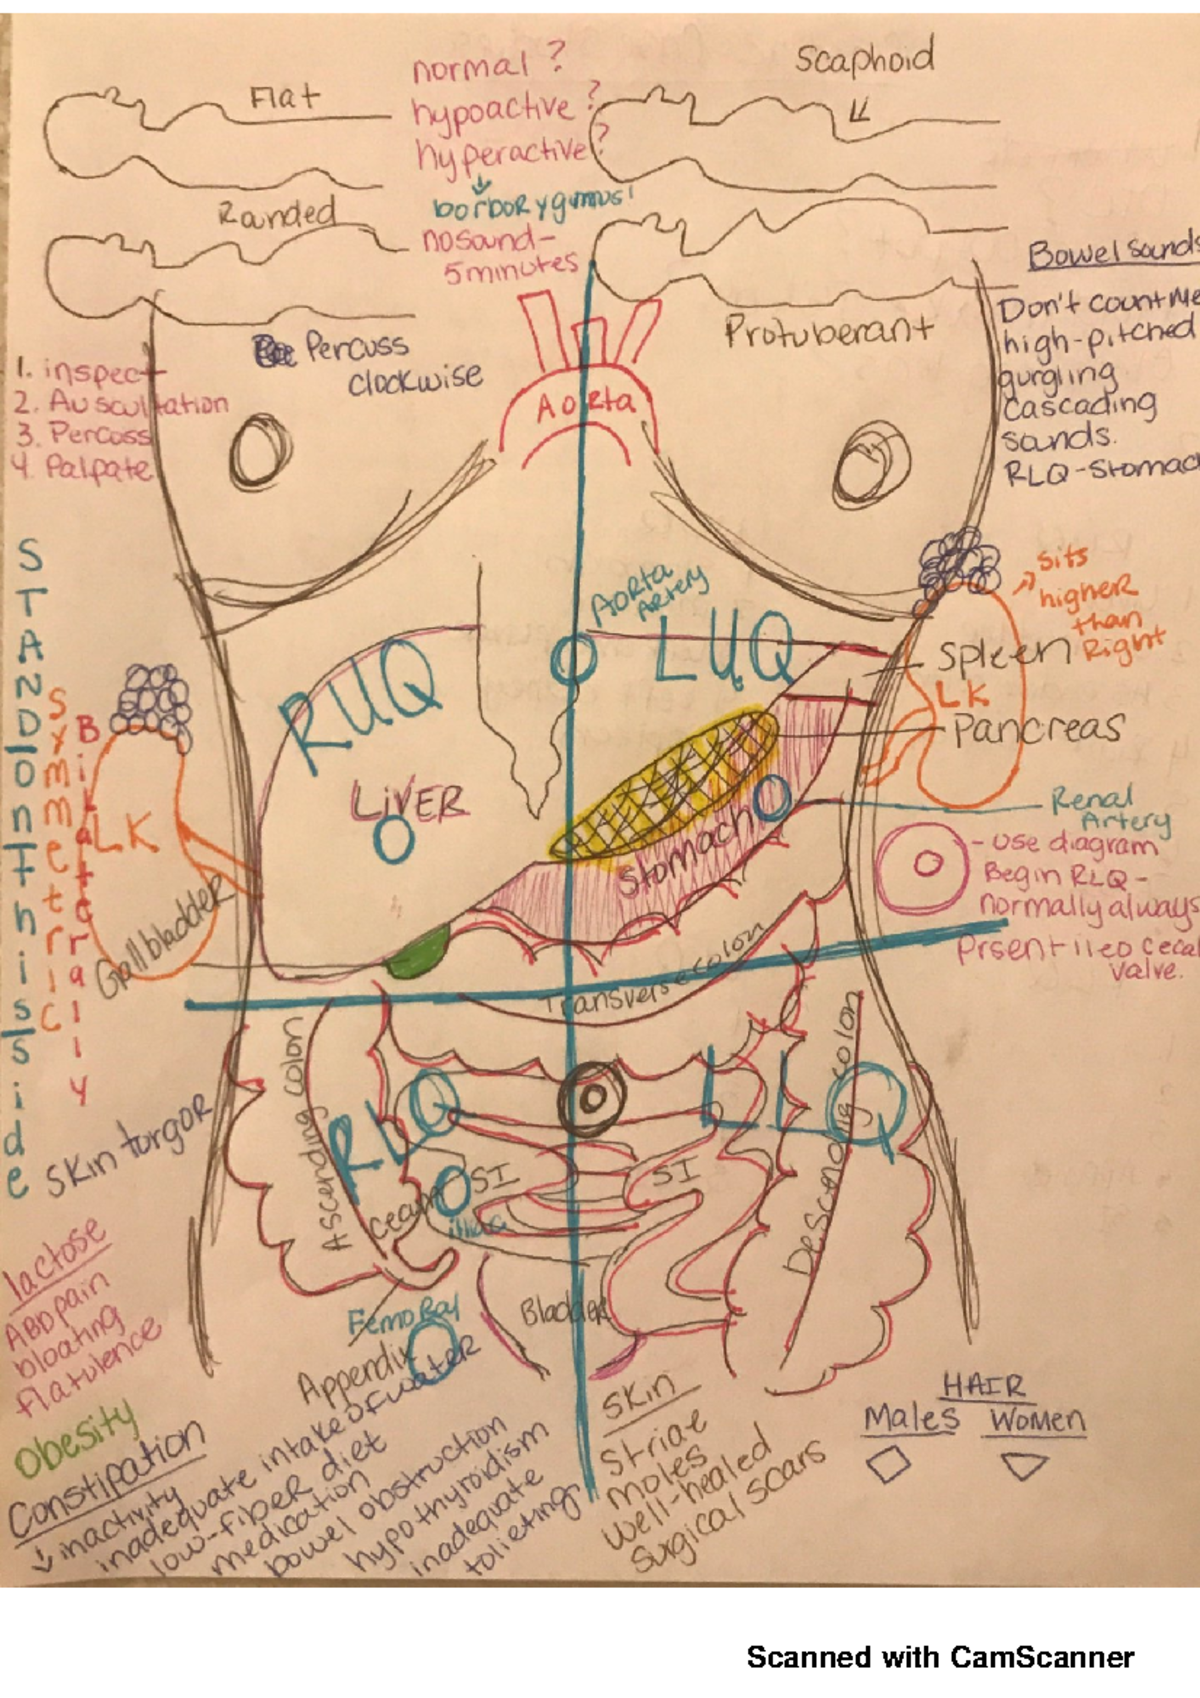 Flat
normal ?
hypoactive ?
hyperactive ?
borborygmus!
no sound -
5 minutes
Scaphoid
Rounded
Protuberant
Bowel sounds
Don't count me
high-pitched
gurgling
cascading
sounds.
RLQ - Stomac
Percuss
clockwise
1. inspect
2. Auscultation
3. Percuss
4. Palpate
Aorta
STAND ON THIS SIDE
Symmetric
Bilaterally
Aorta
Artery
RUQ
LUQ
sits
higher
than
Right
Spleen
LK
Pancreas
Renal
Artery
LIVER
Stomach
LK
Gallbladder
- use diagram
Begin RLQ -
normally always
Prsent ileo cecal
valve.
Transverse colon
Ascending colon
Descending colon
RLQ
LLQ
SI
SI
Cecum
iliac
skin turgor
Bladder
Femoral
Appendix
lactose
ABD pain
bloating
flatulence
Obesity
Constipation
↓ inactivity
inadequate intake of water
low-fiber diet
medication
bowel obstruction
hypothyroidism
inadequate
tolieting
Skin
Striae
moles
well-healed
surgical scars
HAIR
Males Women
Scanned with CamScanner